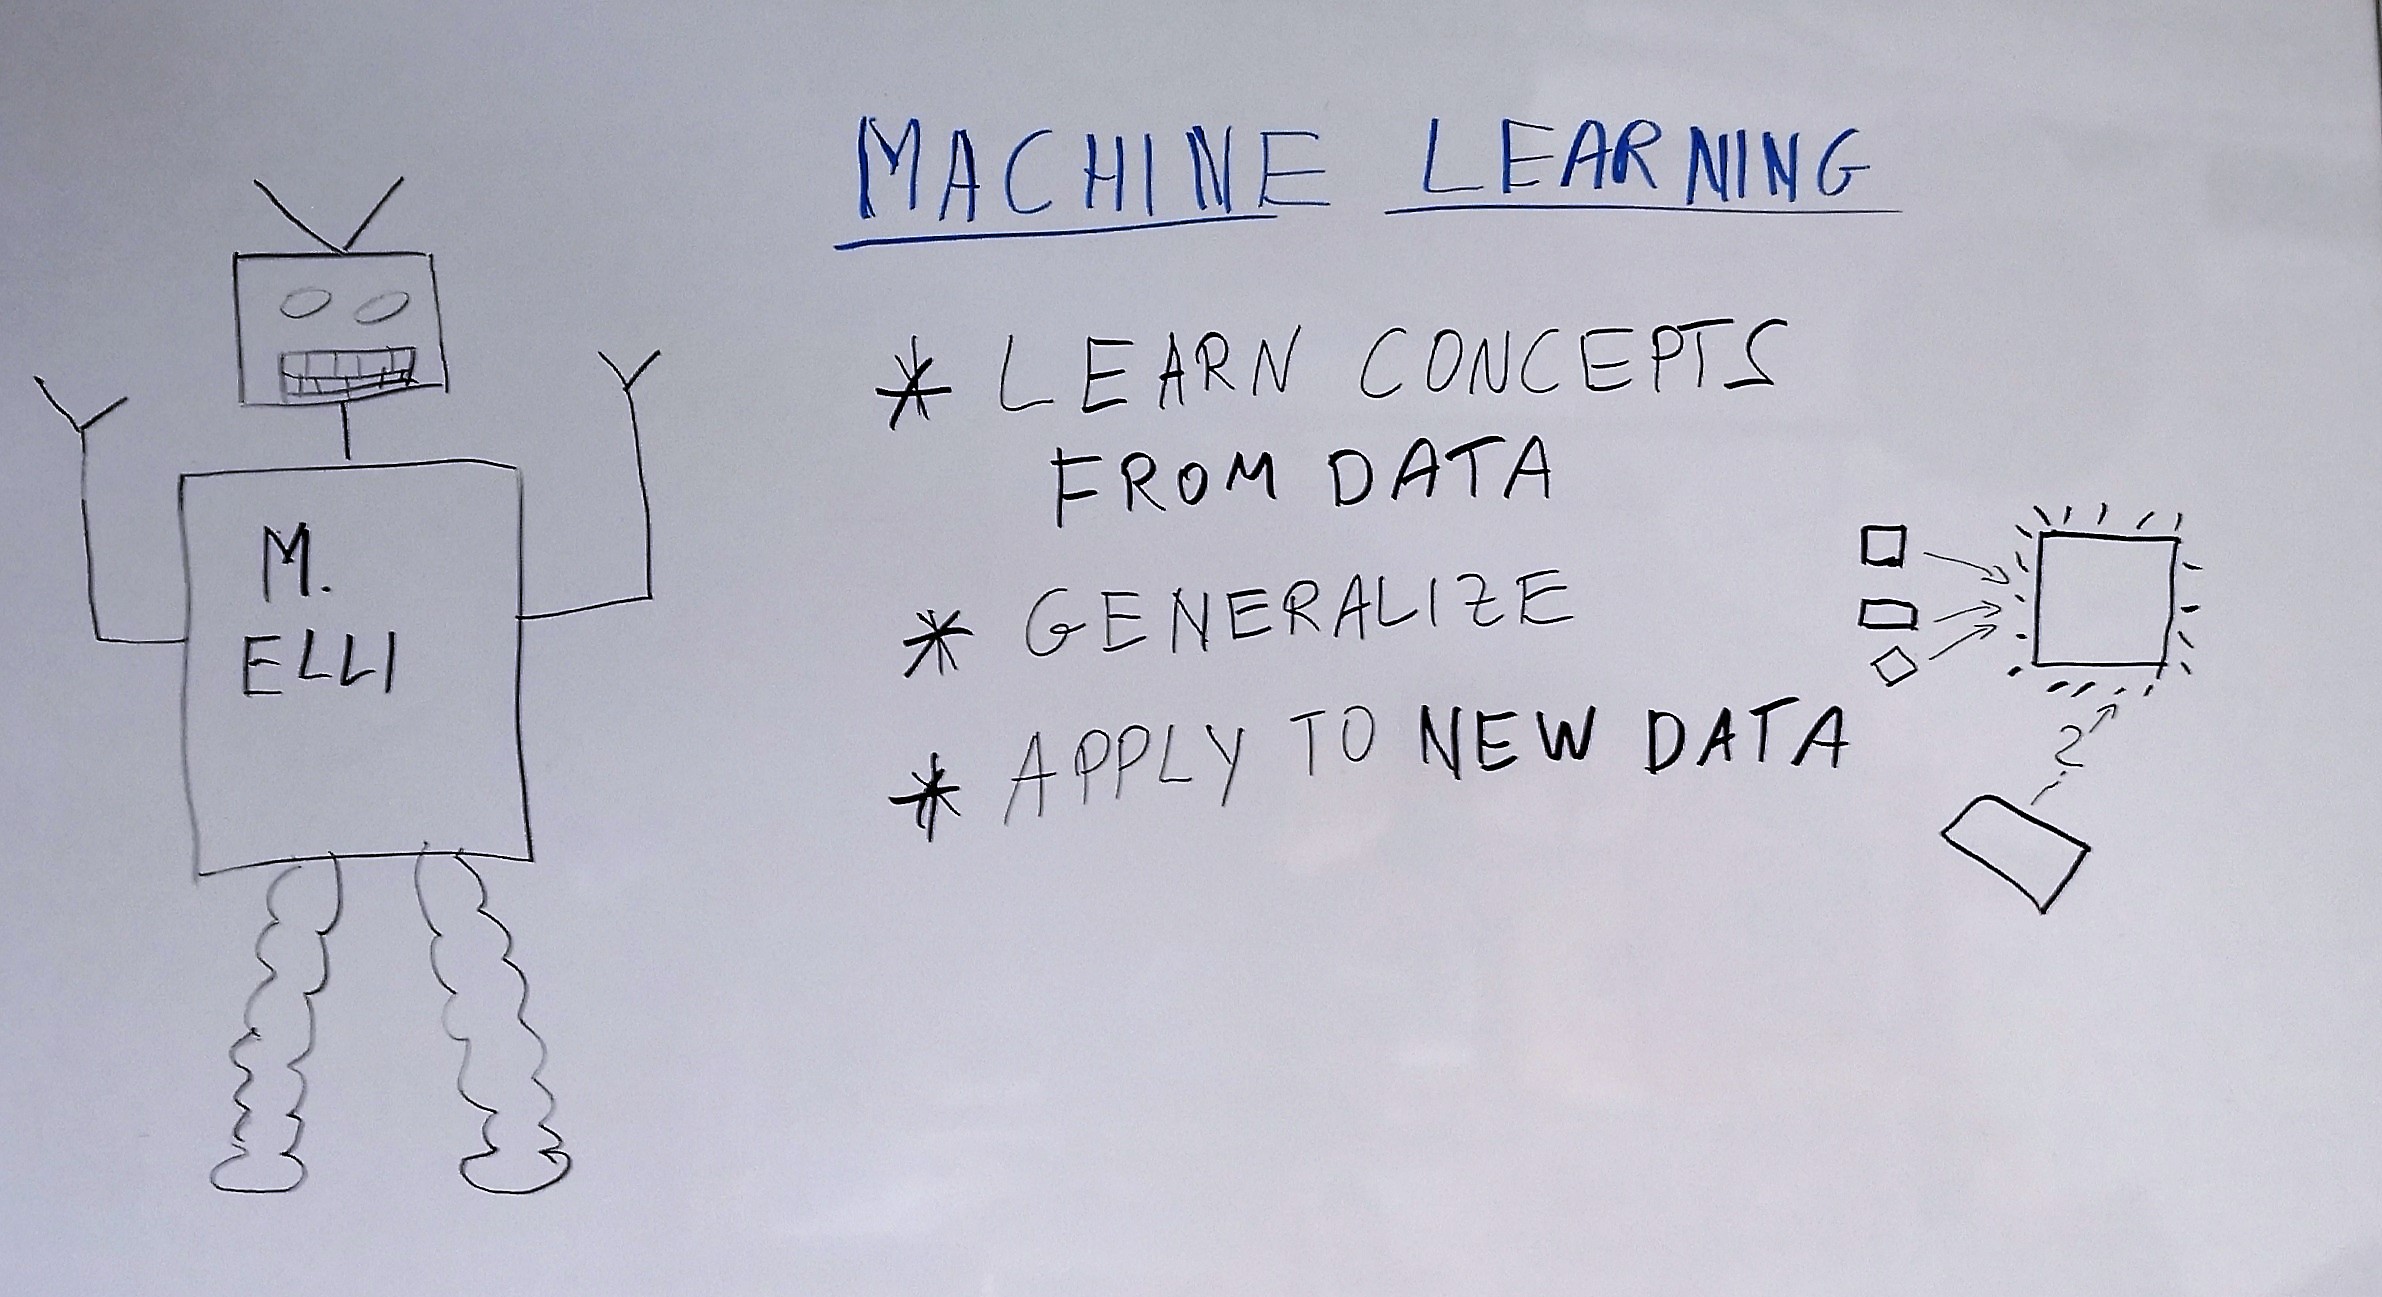 MACHINE LEARNING
* LEARN CONCEPTS
FROM DATA
* GENERALIZE
* APPLY TO NEW DATA
M.
ELLI
?